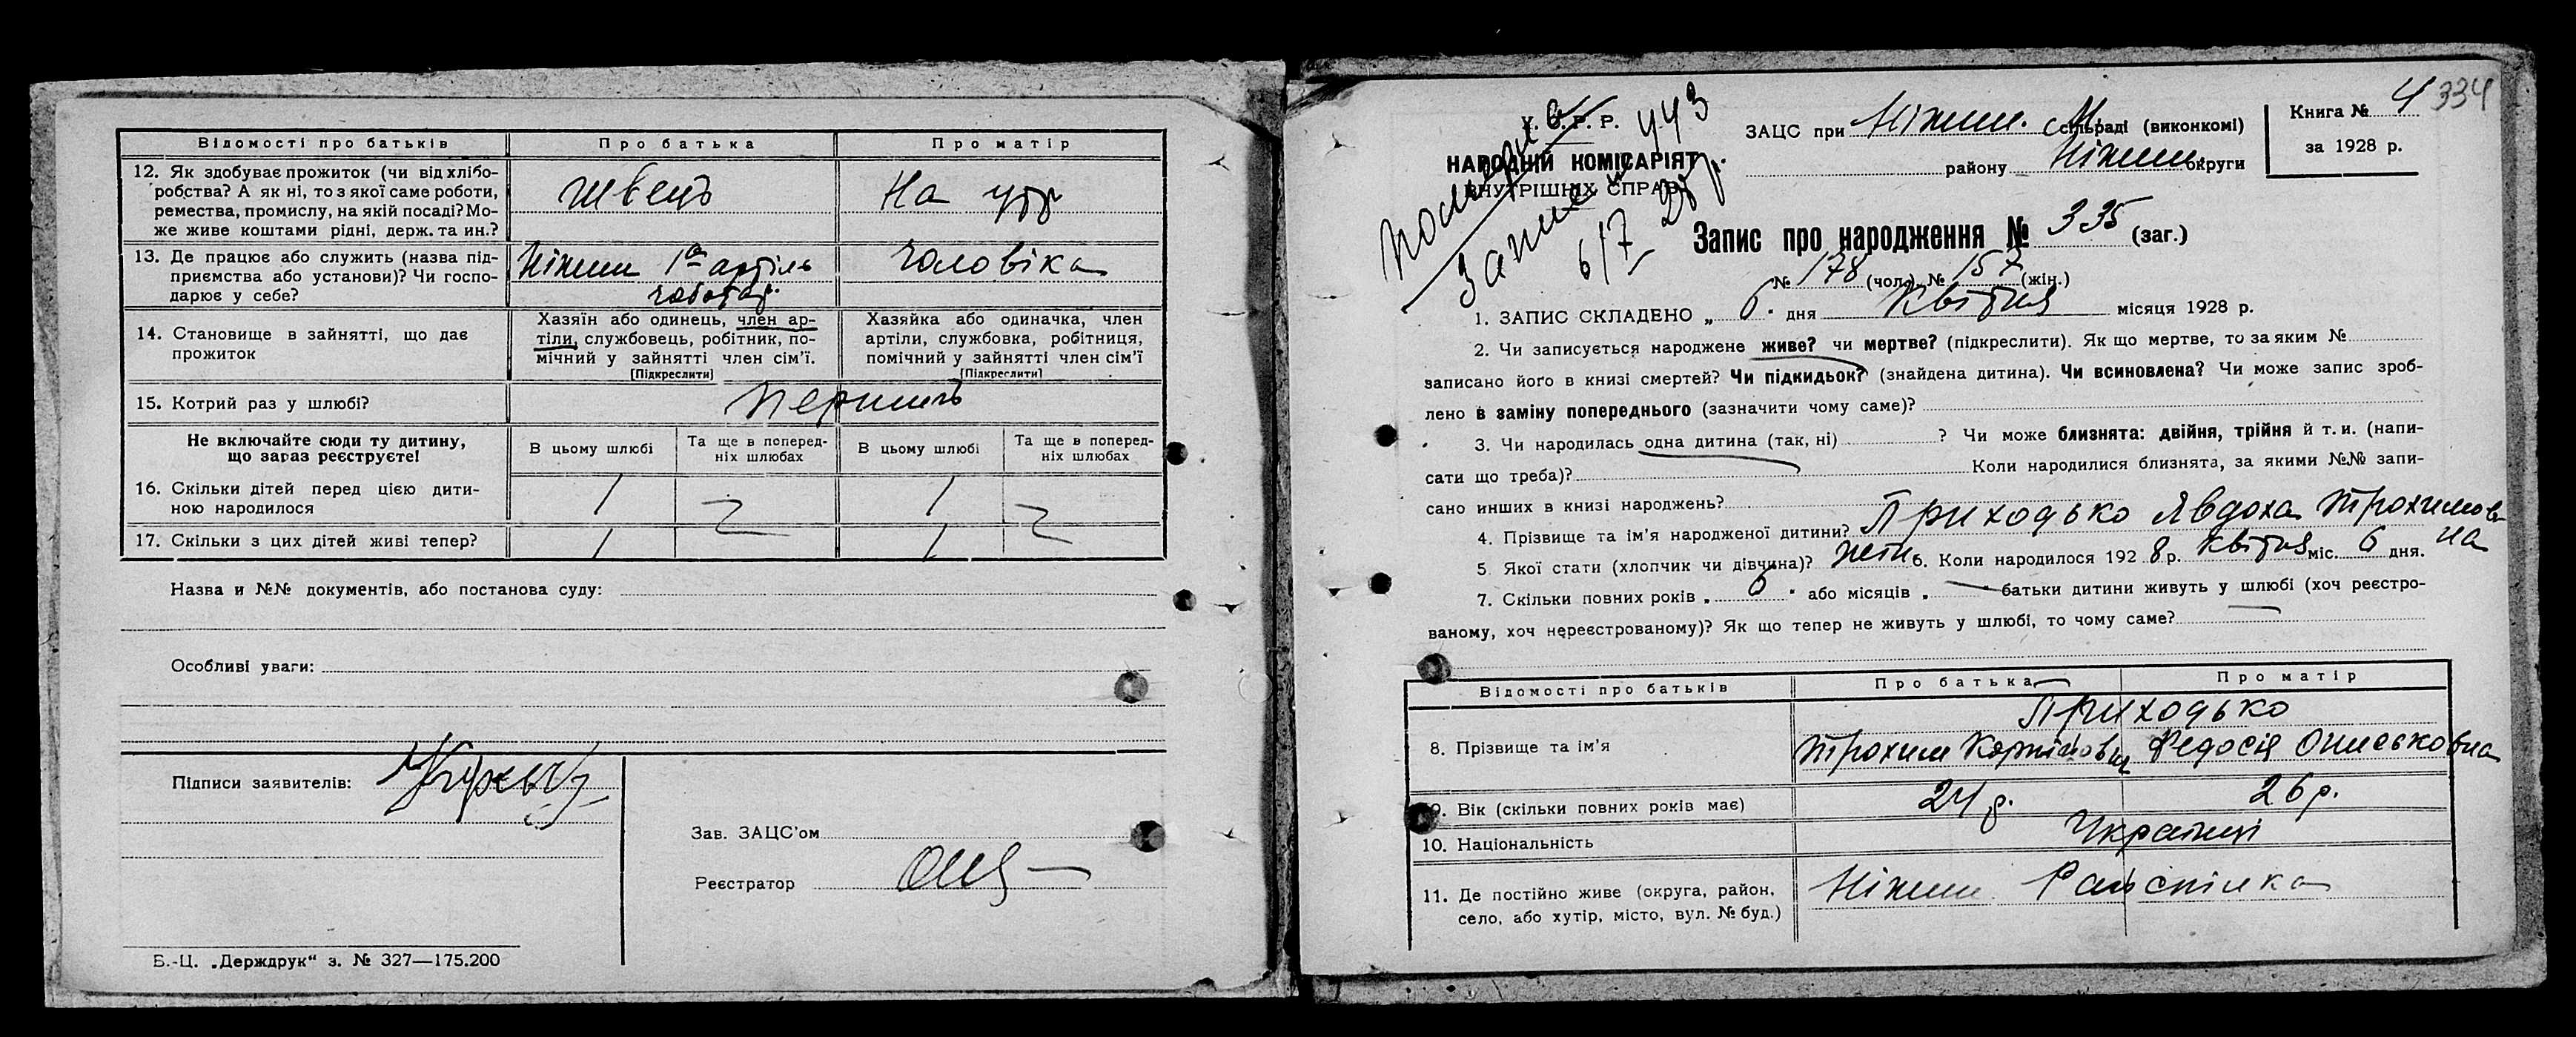 Відомості про батьків
Про батька
Про матір
12. Як здобуває прожиток (чи від хлібо-
робства? А як ні, то з якої саме роботи,
ремества, промислу, на якій посаді? Мо-
же живе коштами рідні, держ. та ин.?
Швець
На утр
13. Де працює або служить (назва під-
приємства або установи)? Чи госпо-
дарює у себе?
Ніжин 1а артіль
чоботар.
чоловіка
14. Становище в зайнятті, що дає
прожиток
Хазяїн або одинець, член ар-
тіли, службовець, робітник, по-
мічний у зайнятті член сім'ї.
[Підкреслити]
Хазяйка або одиначка, член
артіли, службовка, робітниця,
помічний у зайнятті член сім'ї
[Підкреслити]
15. Котрий раз у шлюбі?
Не включайте сюди ту дитину,
що зараз реєструєте!
В цьому шлюбі
Та ще в поперед-
ніх шлюбах
В цьому шлюбі
Та ще в поперед-
ніх шлюбах
16. Скільки дітей перед цією дити-
ною народилося
1
1
17. Скільки з цих дітей живі тепер?
1
1
Назва и №№ документів, або постанова суду:
Особливі уваги:
Підписи заявителів:
Зав. ЗАЦС'ом
Реєстратор
Б.-Ц. „Держдрук“ з. № 327—175.200
334
Книга № 4
за 1928 р.
У. С. Р. Р.
НАРОДНІЙ КОМІСАРІЯТ
ВНУТРІШНІХ СПРАВ
443
6/7 28 р.
ЗАЦС при Ніжин. М. сільраді (виконкомі)
району Ніжин. округи
Запис про народження № 335 (заг.)
№ 178 (чол.) № 157 (жін.)
1. ЗАПИС СКЛАДЕНО „ 6 " дня Квітня місяця 1928 р.
2. Чи записується народжене живе? чи мертве? (підкреслити). Як що мертве, то за яким №
записано його в книзі смертей? Чи підкидьок? (знайдена дитина). Чи всиновлена? Чи може запис зроб-
лено в заміну попереднього (зазначити чому саме)?
3. Чи народилась одна дитина (так, ні) ? Чи може близнята: двійня, трійня й т. и. (напи-
сати що треба)? Коли народилися близнята, за якими №№ запи-
сано инших в книзі народжень?
4. Прізвище та ім'я народженої дитини? Приходько Явдоха Трохимов
на
5 Якої стати (хлопчик чи дівчина)? жін 6. Коли народилося 1928 р. квітня міс. 6 дня.
7. Скільки повних років „ 6 " або місяців „ — " батьки дитини живуть у шлюбі (хоч реєстро-
ваному, хоч нереєстрованому)? Як що тепер не живуть у шлюбі, то чому саме?
Відомості про батьків
Про батька
Про матір
8. Прізвище та ім'я
Приходько
Трохим
Федосія Ониськовна
9. Вік (скільки повних років має)
24 р.
26 р.
10. Національність
Українці
11. Де постійно живе (округа, район,
село, або хутір, місто, вул. № буд.)
Ніжин.